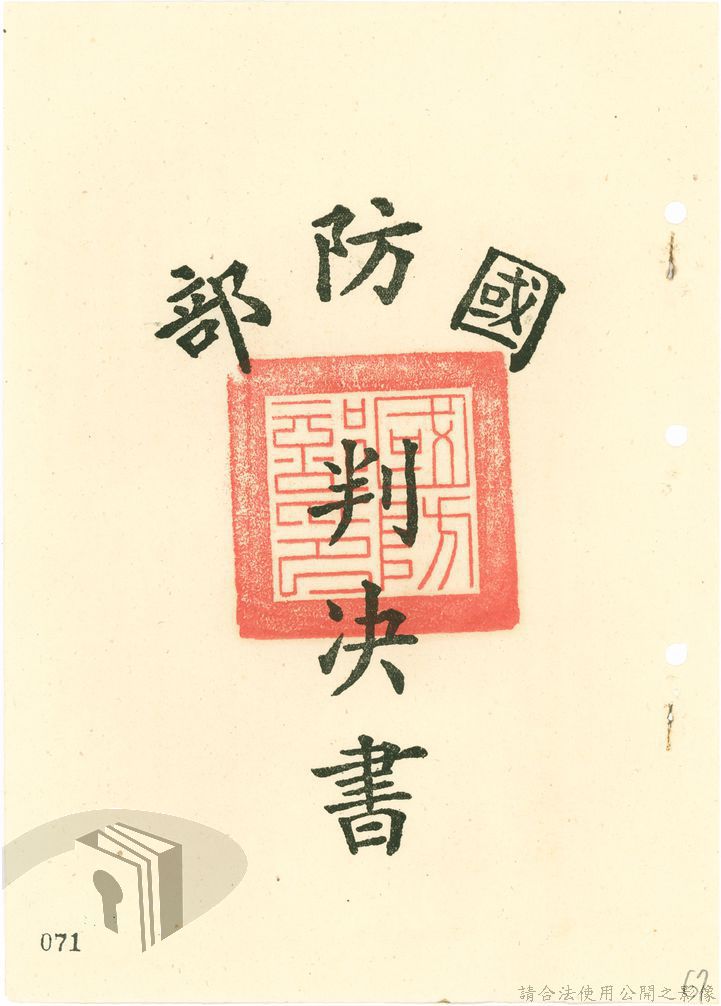 國防部
判決書
國防部印
071
請合法使用公開之影像